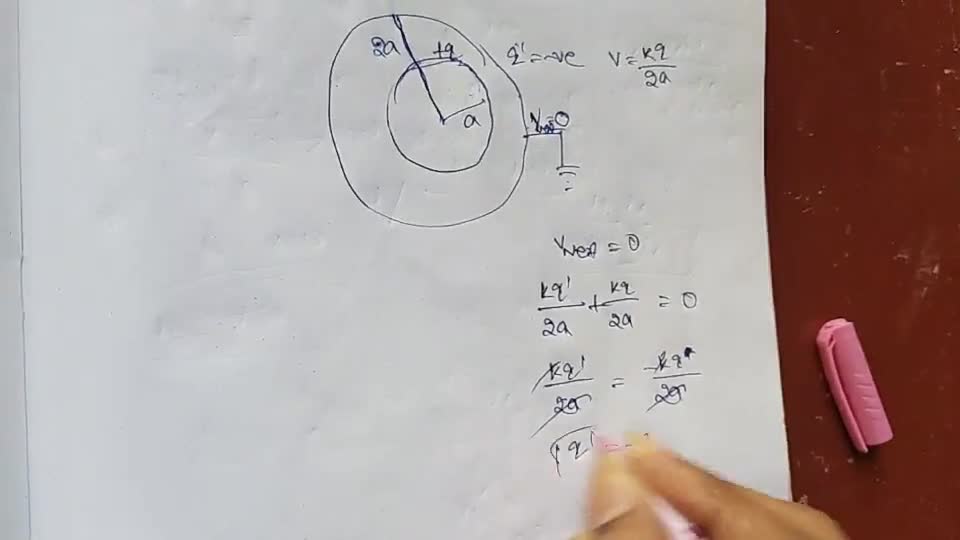 2a +q q' = -ve V = kq/2a
a
V = 0
Vnet = 0
kq'/2a + kq/2a = 0
kq'/2a = -kq/2a
q' = -